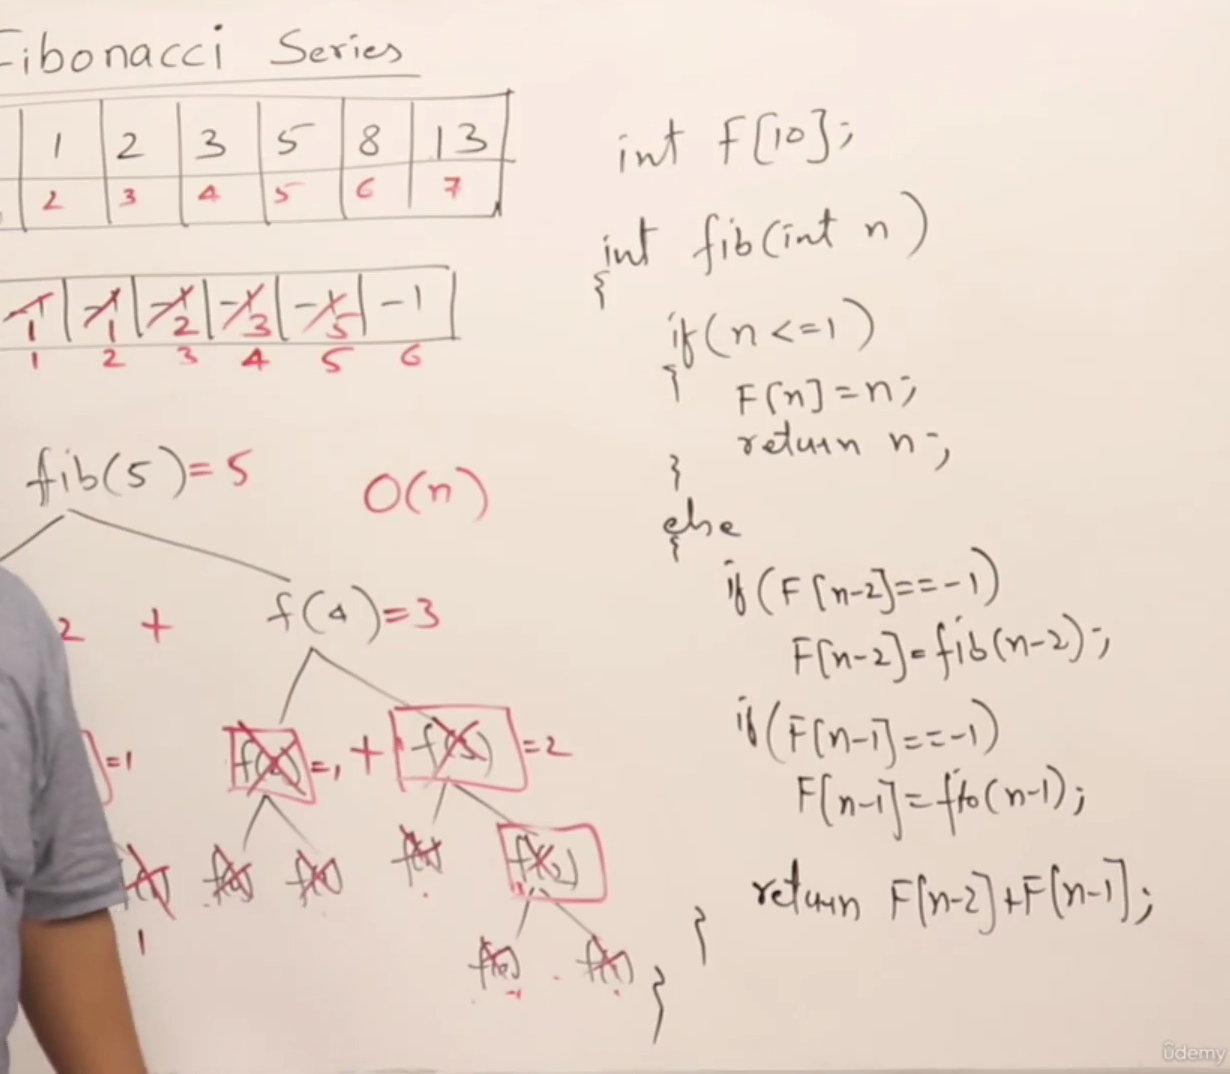 Fibonacci Series
1 2 3 5 8 13
2 3 4 5 6 7
-1 -1 -1 -1 -1 -1
1 1 2 3 5
1 2 3 4 5 6
fib(5)=5 O(n)
2 + f(4)=3
=1 f(2)=1 + f(3)=2
f(1) f(0) f(1) f(1) f(2)
1
f(0) f(1)
int F[10];
int fib(int n)
{
if(n<=1)
{
F[n]=n;
return n;
}
else
{
if(F[n-2]==-1)
F[n-2]=fib(n-2);
if(F[n-1]==-1)
F[n-1]=fib(n-1);
return F[n-2]+F[n-1];
}
}
ûdemy